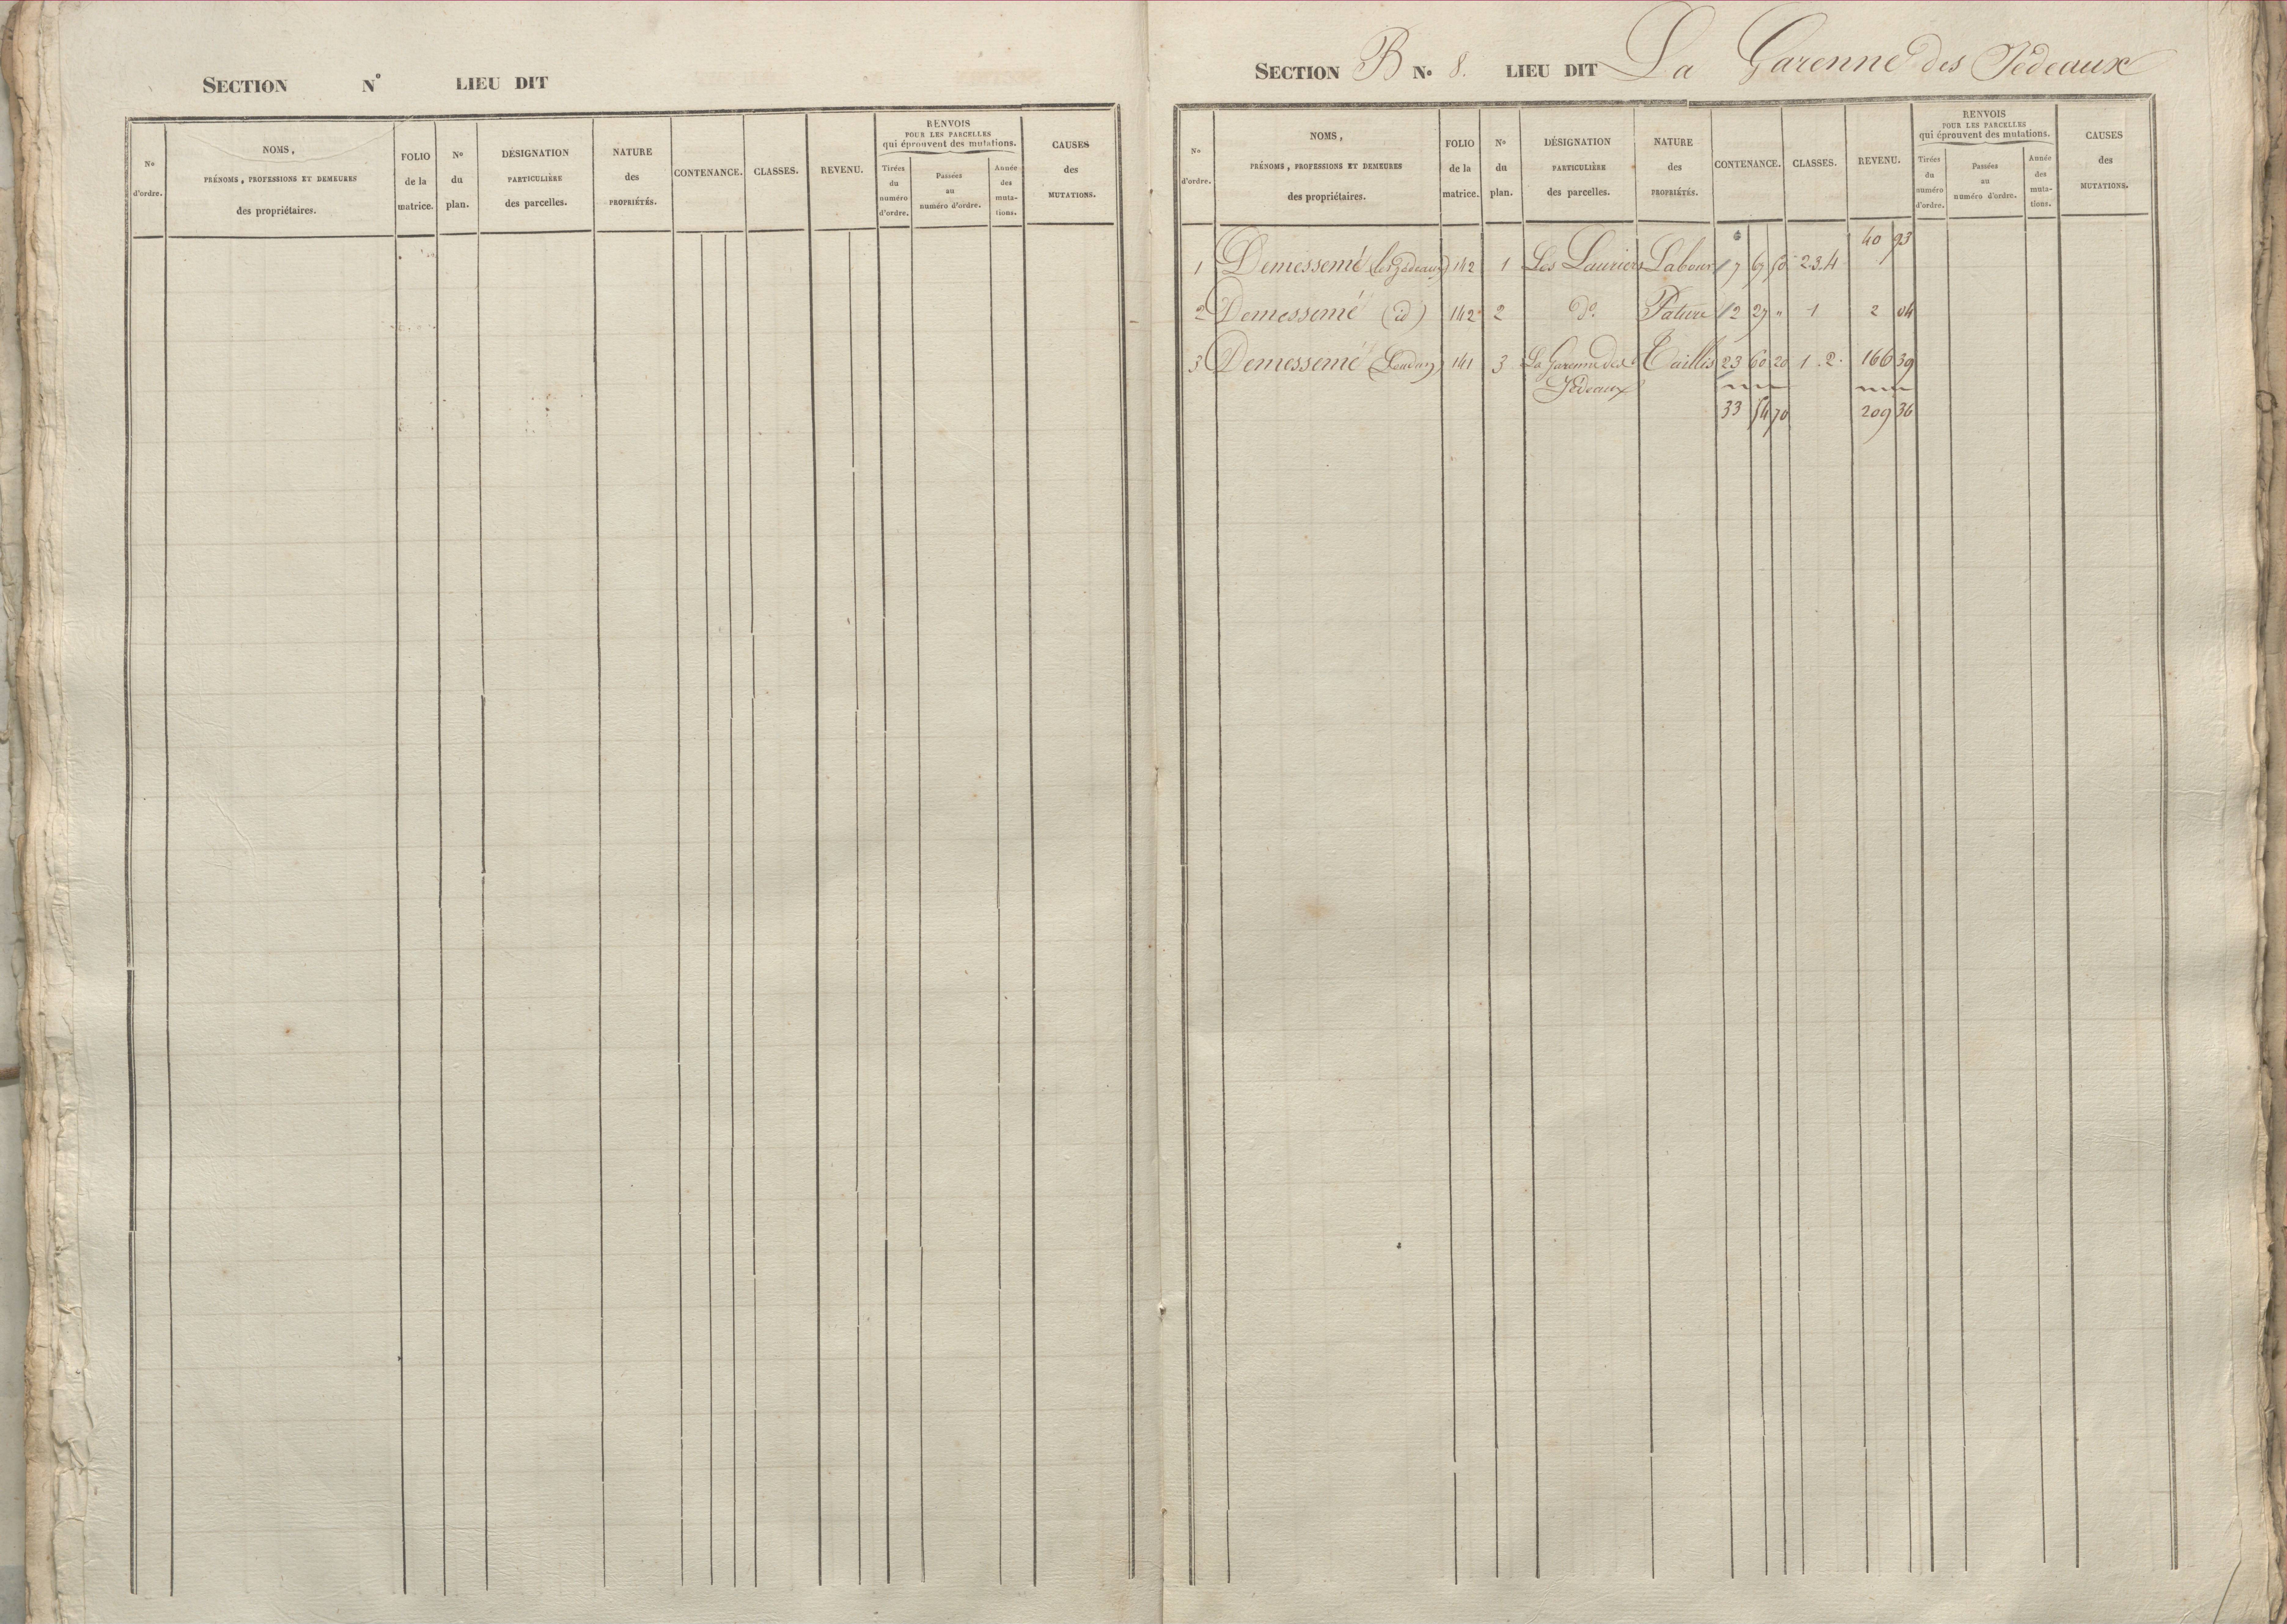 SECTION N° LIEU DIT
N° d'ordre. NOMS, PRÉNOMS, PROFESSIONS ET DEMEURES des propriétaires. FOLIO de la matrice. N° du plan. DÉSIGNATION PARTICULIÈRE des parcelles. NATURE des PROPRIÉTÉS. CONTENANCE. CLASSES. REVENU. RENVOIS POUR LES PARCELLES qui éprouvent des mutations. Tirées du numéro d'ordre. Passées au numéro d'ordre. Année des mutations. CAUSES des MUTATIONS.
SECTION B N° 8. LIEU DIT La Garenne des Jédeaux
N° d'ordre. NOMS, PRÉNOMS, PROFESSIONS ET DEMEURES des propriétaires. FOLIO de la matrice. N° du plan. DÉSIGNATION PARTICULIÈRE des parcelles. NATURE des PROPRIÉTÉS. CONTENANCE. CLASSES. REVENU. RENVOIS POUR LES PARCELLES qui éprouvent des mutations. Tirées du numéro d'ordre. Passées au numéro d'ordre. Année des mutations. CAUSES des MUTATIONS.
1 Demessemé (les Jédeaux) 142 1 Les Lauriers Labour 7 67 50 2.3.4 40 93
2 Demessemé (id) 142 2 d° Pature 2 27 " 1 2 04
3 Demessemé 141 3 La Garenne des Taillis 23 60 20 1.2. 166 39
Jédeaux
33 54 70 209 36